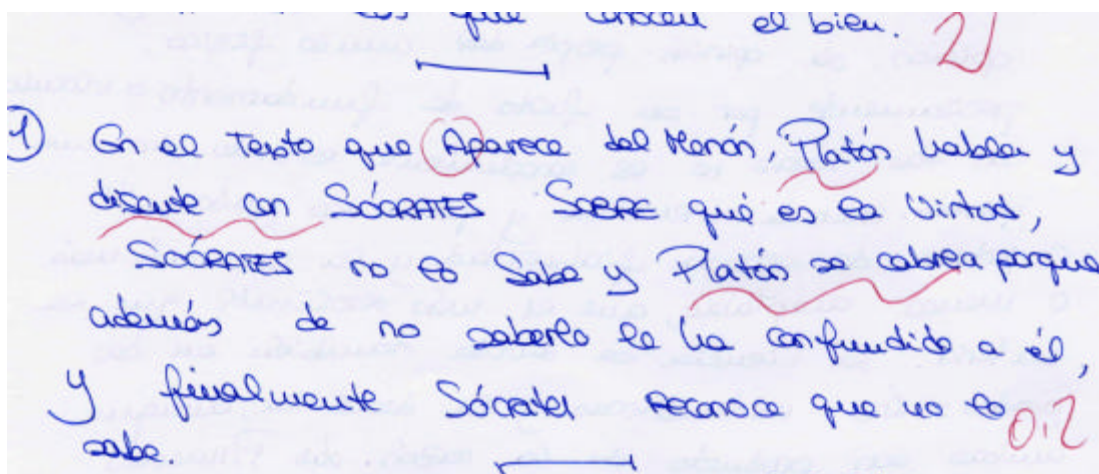 que conocen el bien. 2)
1) En el Texto que Aparece del Menón, Platón habla y
discute con SÓCRATES SOBRE qué es la virtud,
SÓCRATES no lo sabe y Platón se cabrea porque
además de no saberlo le ha confundido a él,
y finalmente Sócrates reconoce que no lo
sabe. 0,2